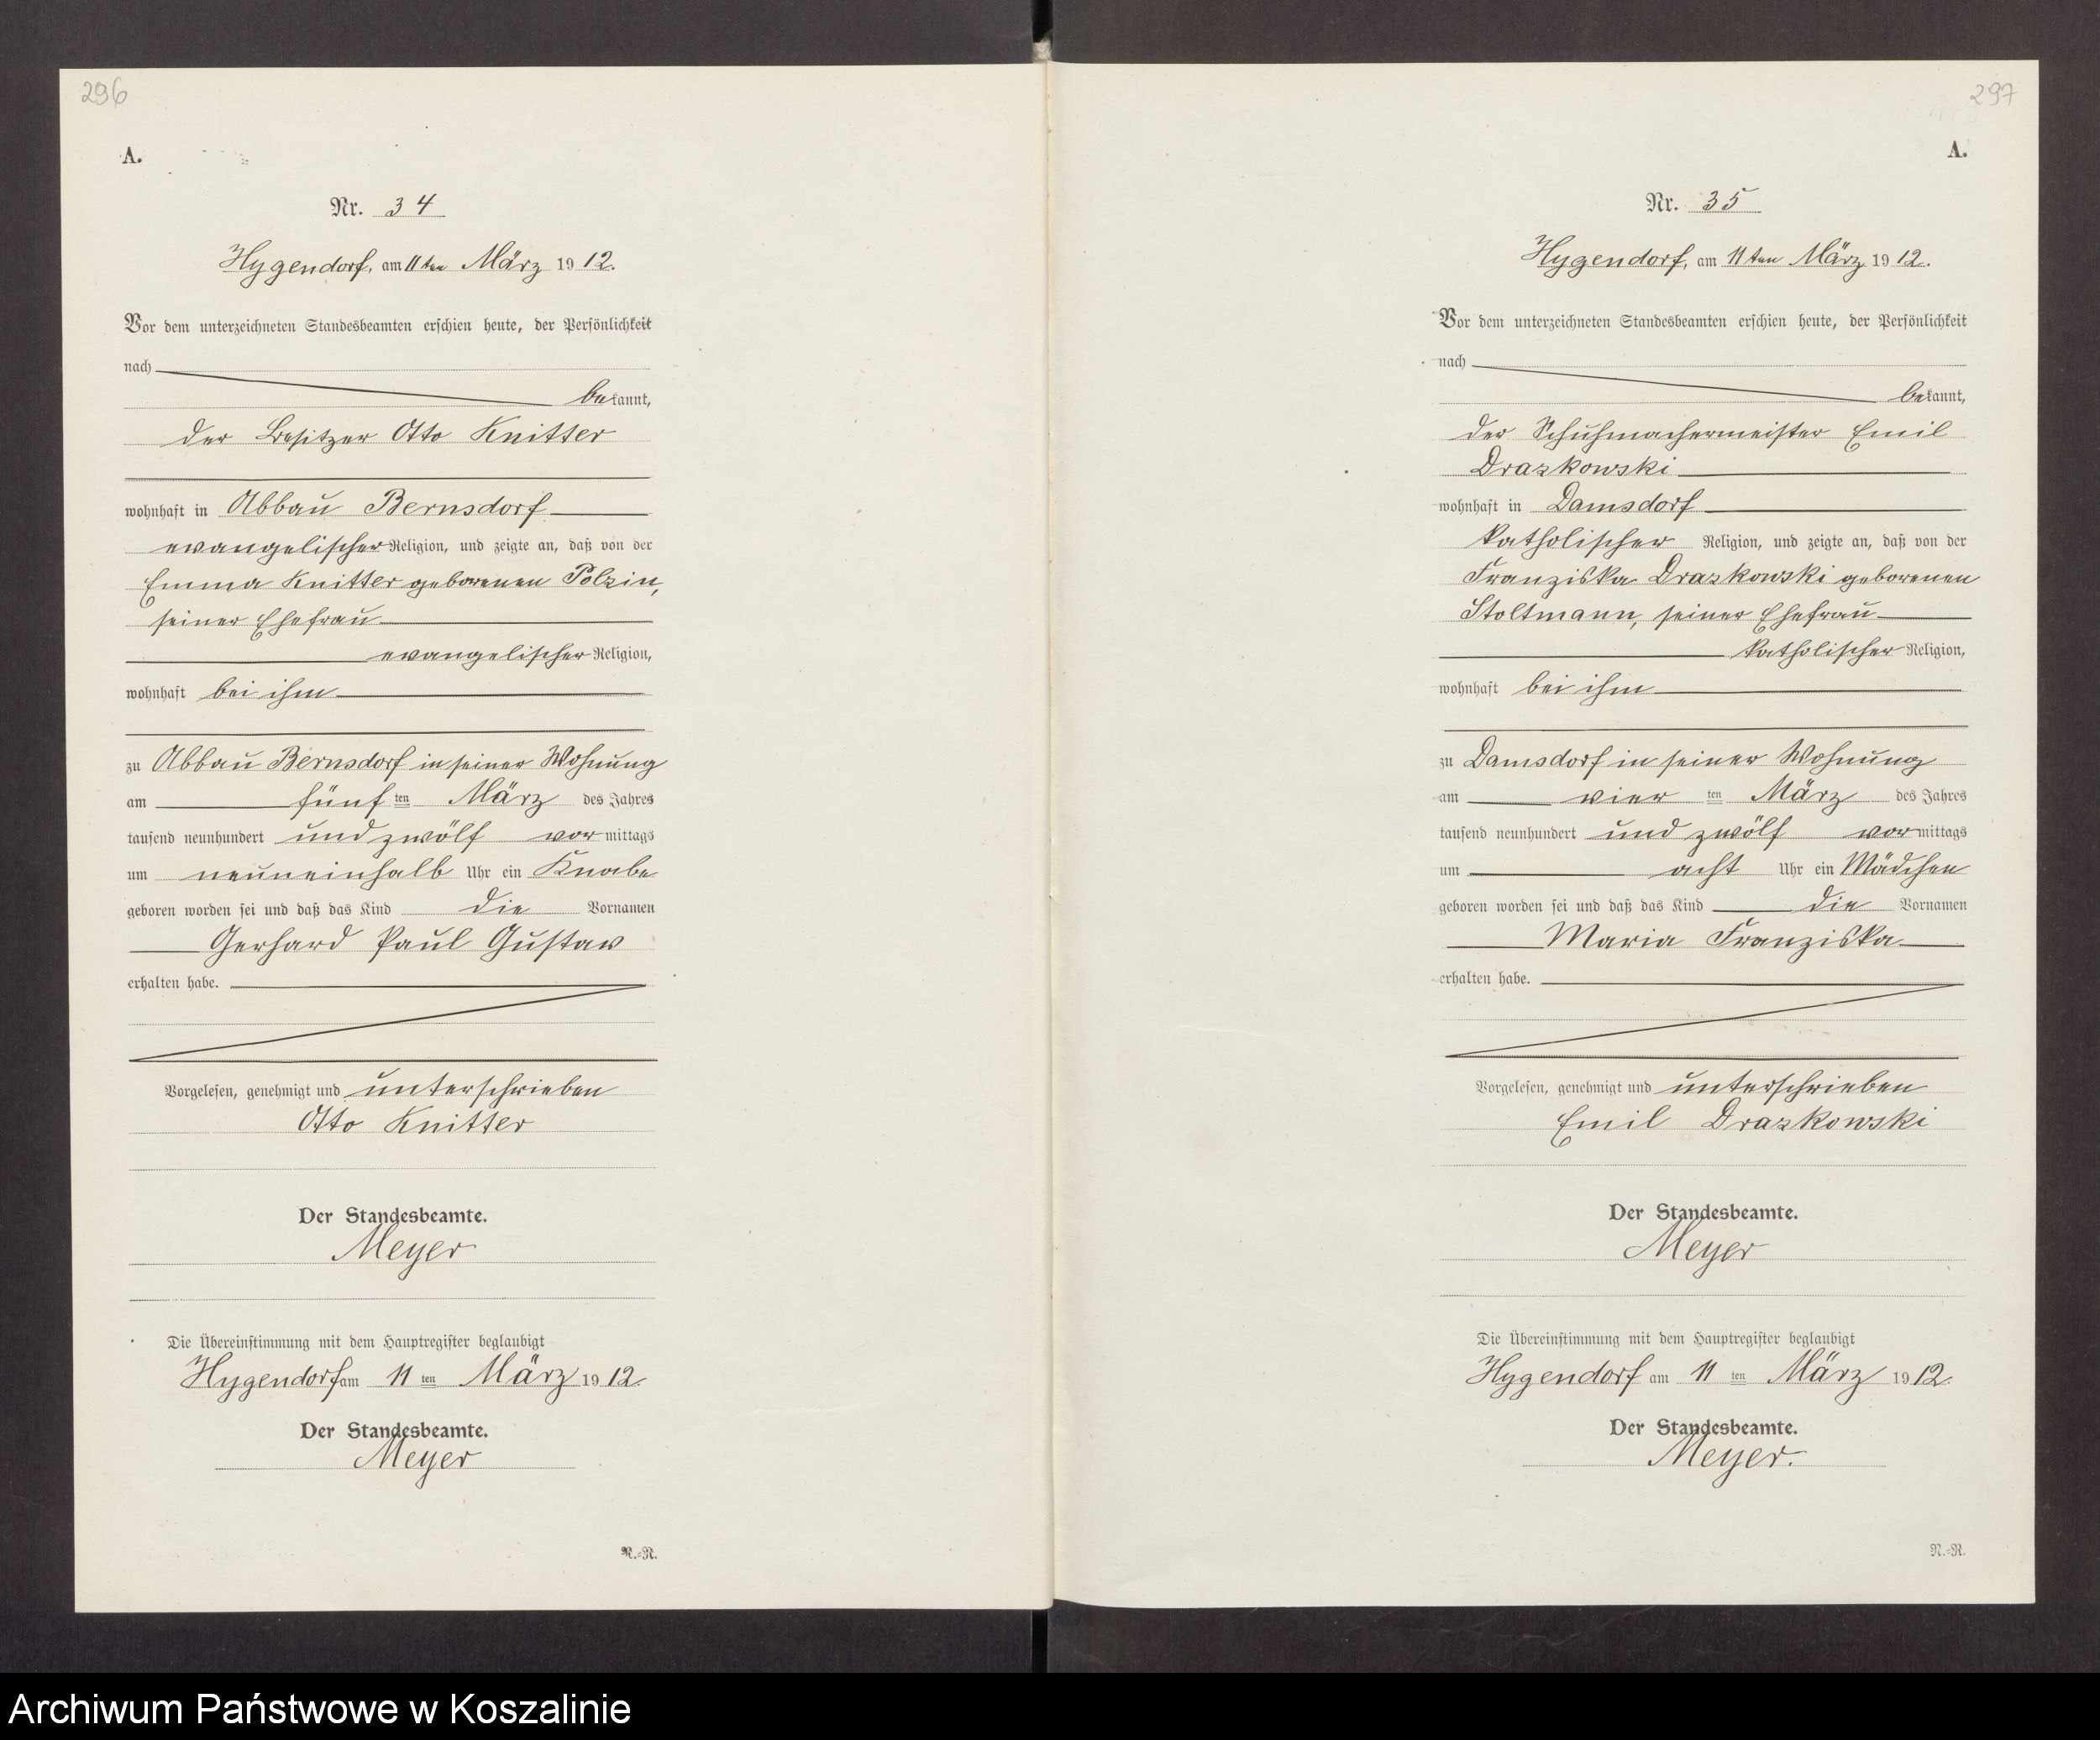 296
A.
Nr. 34
Hygendorf, am 11ten März 1912.
Vor dem unterzeichneten Standesbeamten erschien heute, der Persönlichkeit
nach
bekannt,
der Besitzer Otto Knitter
wohnhaft in Abbau Bernsdorf
evangelischer Religion, und zeigte an, daß von der
Emma Knitter geborenen Polzin,
seiner Ehefrau
evangelischer Religion,
wohnhaft bei ihm
zu Abbau Bernsdorf in seiner Wohnung
am fünf ten März des Jahres
tausend neunhundert und zwölf vormittags
um neuneinhalb Uhr ein Knabe
geboren worden sei und daß das Kind die Vornamen
Gerhard Paul Gustav
erhalten habe.
Vorgelesen, genehmigt und unterschrieben
Otto Knitter
Der Standesbeamte.
Meyer
Die Übereinstimmung mit dem Hauptregister beglaubigt
Hygendorf am 11 ten März 1912.
Der Standesbeamte.
Meyer
N.=R.
297
A.
Nr. 35
Hygendorf, am 11ten März 1912.
Vor dem unterzeichneten Standesbeamten erschien heute, der Persönlichkeit
nach
bekannt,
der Schuhmachermeister Emil
Drazkowski
wohnhaft in Damsdorf
katholischer Religion, und zeigte an, daß von der
Franziska Drazkowski geborenen
Stoltmann, seiner Ehefrau
katholischer Religion,
wohnhaft bei ihm
zu Damsdorf in seiner Wohnung
am vier ten März des Jahres
tausend neunhundert und zwölf vormittags
um acht Uhr ein Mädchen
geboren worden sei und daß das Kind die Vornamen
Maria Franziska
erhalten habe.
Vorgelesen, genehmigt und unterschrieben
Emil Drazkowski
Der Standesbeamte.
Meyer
Die Übereinstimmung mit dem Hauptregister beglaubigt
Hygendorf am 11 ten März 1912.
Der Standesbeamte.
Meyer.
N.=R.
Archiwum Państwowe w Koszalinie